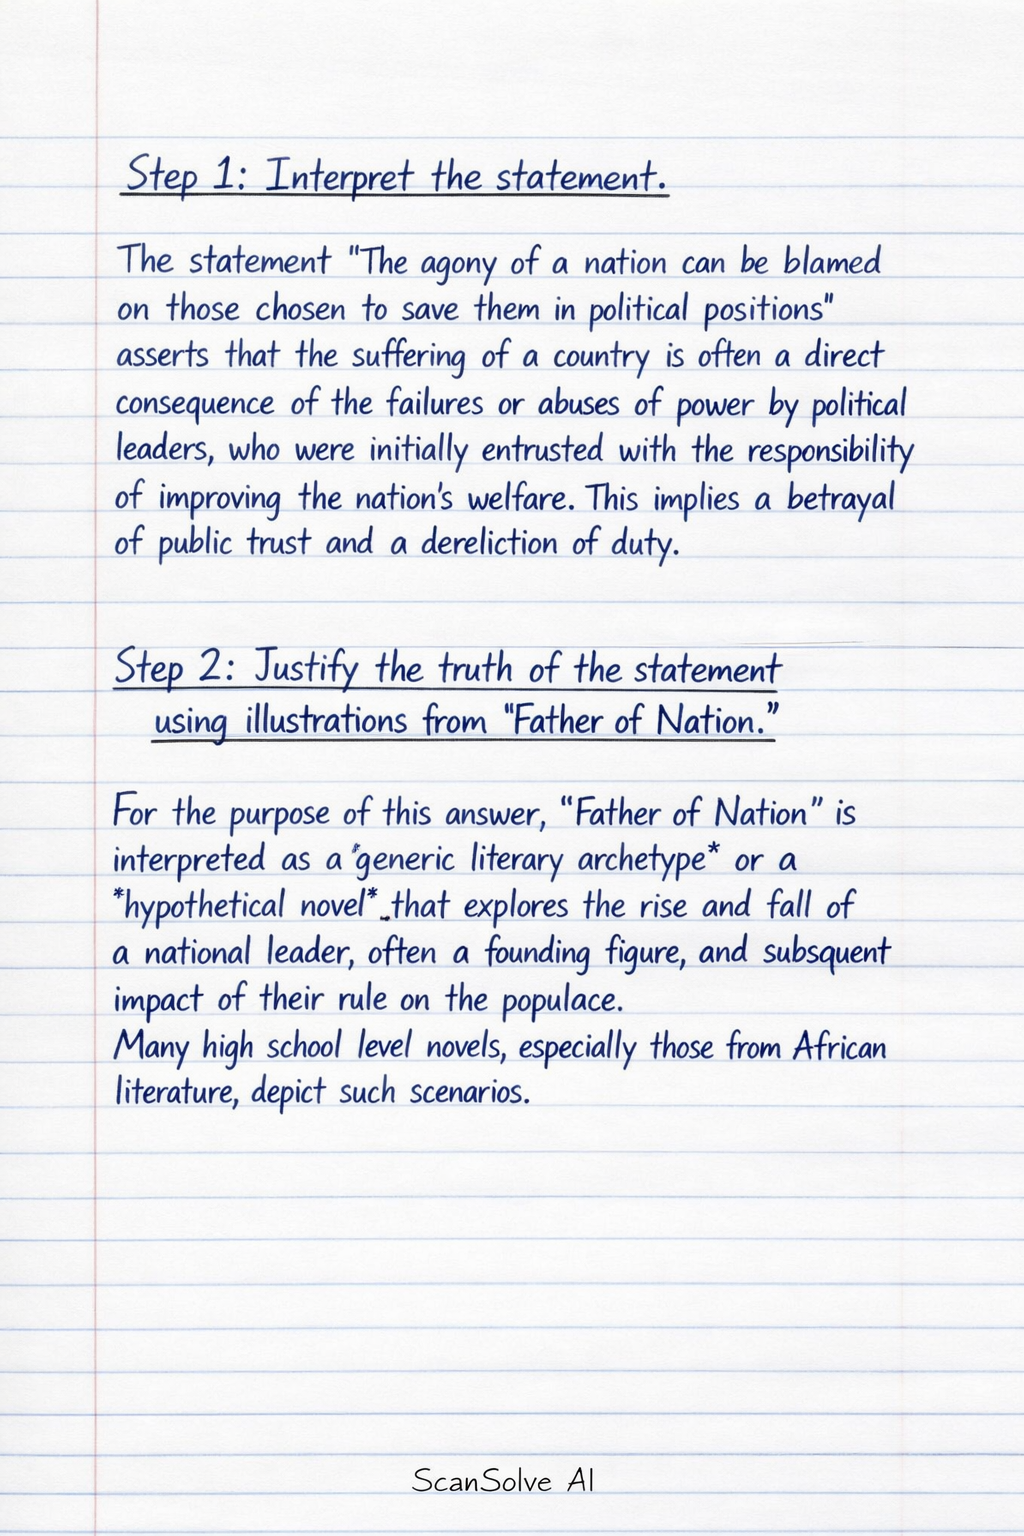 Step 1: Interpret the statement.
The statement "The agony of a nation can be blamed
on those chosen to save them in political positions"
asserts that the suffering of a country is often a direct
consequence of the failures or abuses of power by political
leaders, who were initially entrusted with the responsibility
of improving the nation's welfare. This implies a betrayal
of public trust and a dereliction of duty.
Step 2: Justify the truth of the statement
using illustrations from "Father of Nation."
For the purpose of this answer, "Father of Nation" is
interpreted as a *generic literary archetype* or a
*hypothetical novel* that explores the rise and fall of
a national leader, often a founding figure, and subsquent
impact of their rule on the populace.
Many high school level novels, especially those from African
literature, depict such scenarios.
ScanSolve AI